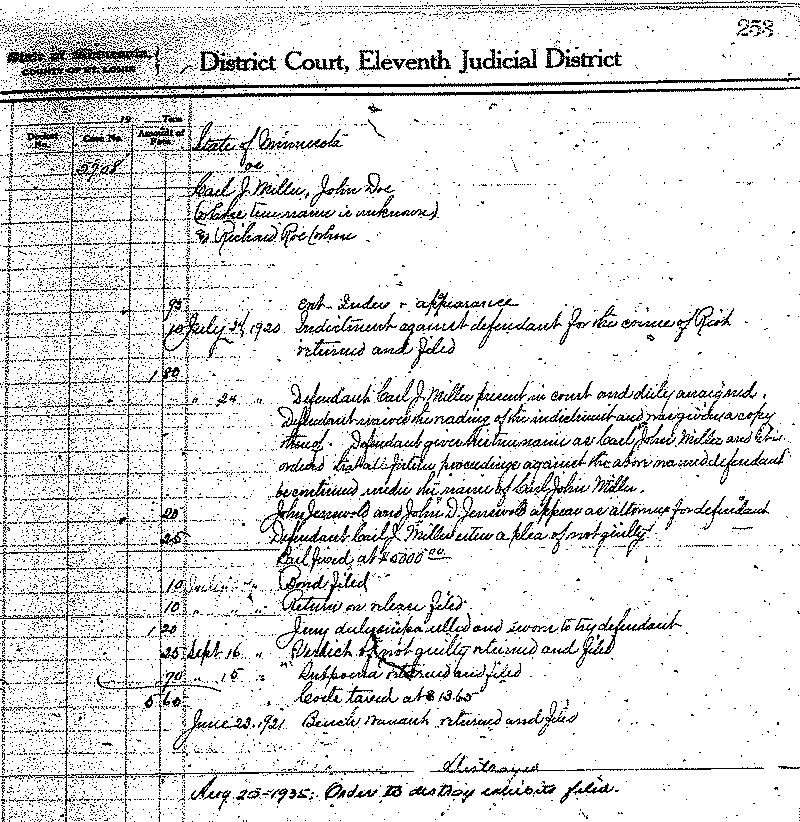 258
State of Minnesota,
County of St. Louis
District Court, Eleventh Judicial District
19 Term
Docket No. Case No. Amount of Fees
State of Minnesota
5908 vs
Carl J. Miller, John Doe
(whose true name is unknown)
& Richard Roe (whose
95 Ent. Index & appearance
10 July 1920 Indictment against defendant for the crime of Riot
returned and filed
1 80
" 24 " Defendant Carl J. Miller present in court and duly arraigned.
Defendant waives the reading of the indictment and was given a copy
thereof. Defendant gives his true name as Carl John Miller and it is
ordered that all further proceedings against the above named defendant
be continued under the name of Carl John Miller.
20 John Jenswold and John D. Jenswold appear as attorneys for defendant
25 Defendant Carl J. Miller enters a plea of not guilty.
Bail fixed at $ 00
10 " " Bond filed
10 " " " Return on release filed
1 20 Jury duly impanelled and sworn to try defendant
25 Sept 16 " Verdict of not guilty returned and filed
70 " 15 " Subpoena returned and filed
5 60 Costs taxed at $13.65
June 23, 1921 Bench warrant returned and filed
Destroyed
Aug 23-1935: Order to destroy exhibits filed.